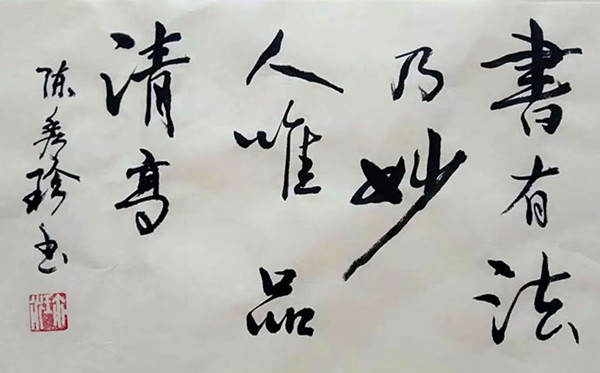 書有法
乃妙
人唯品
清高
陈秀珍书